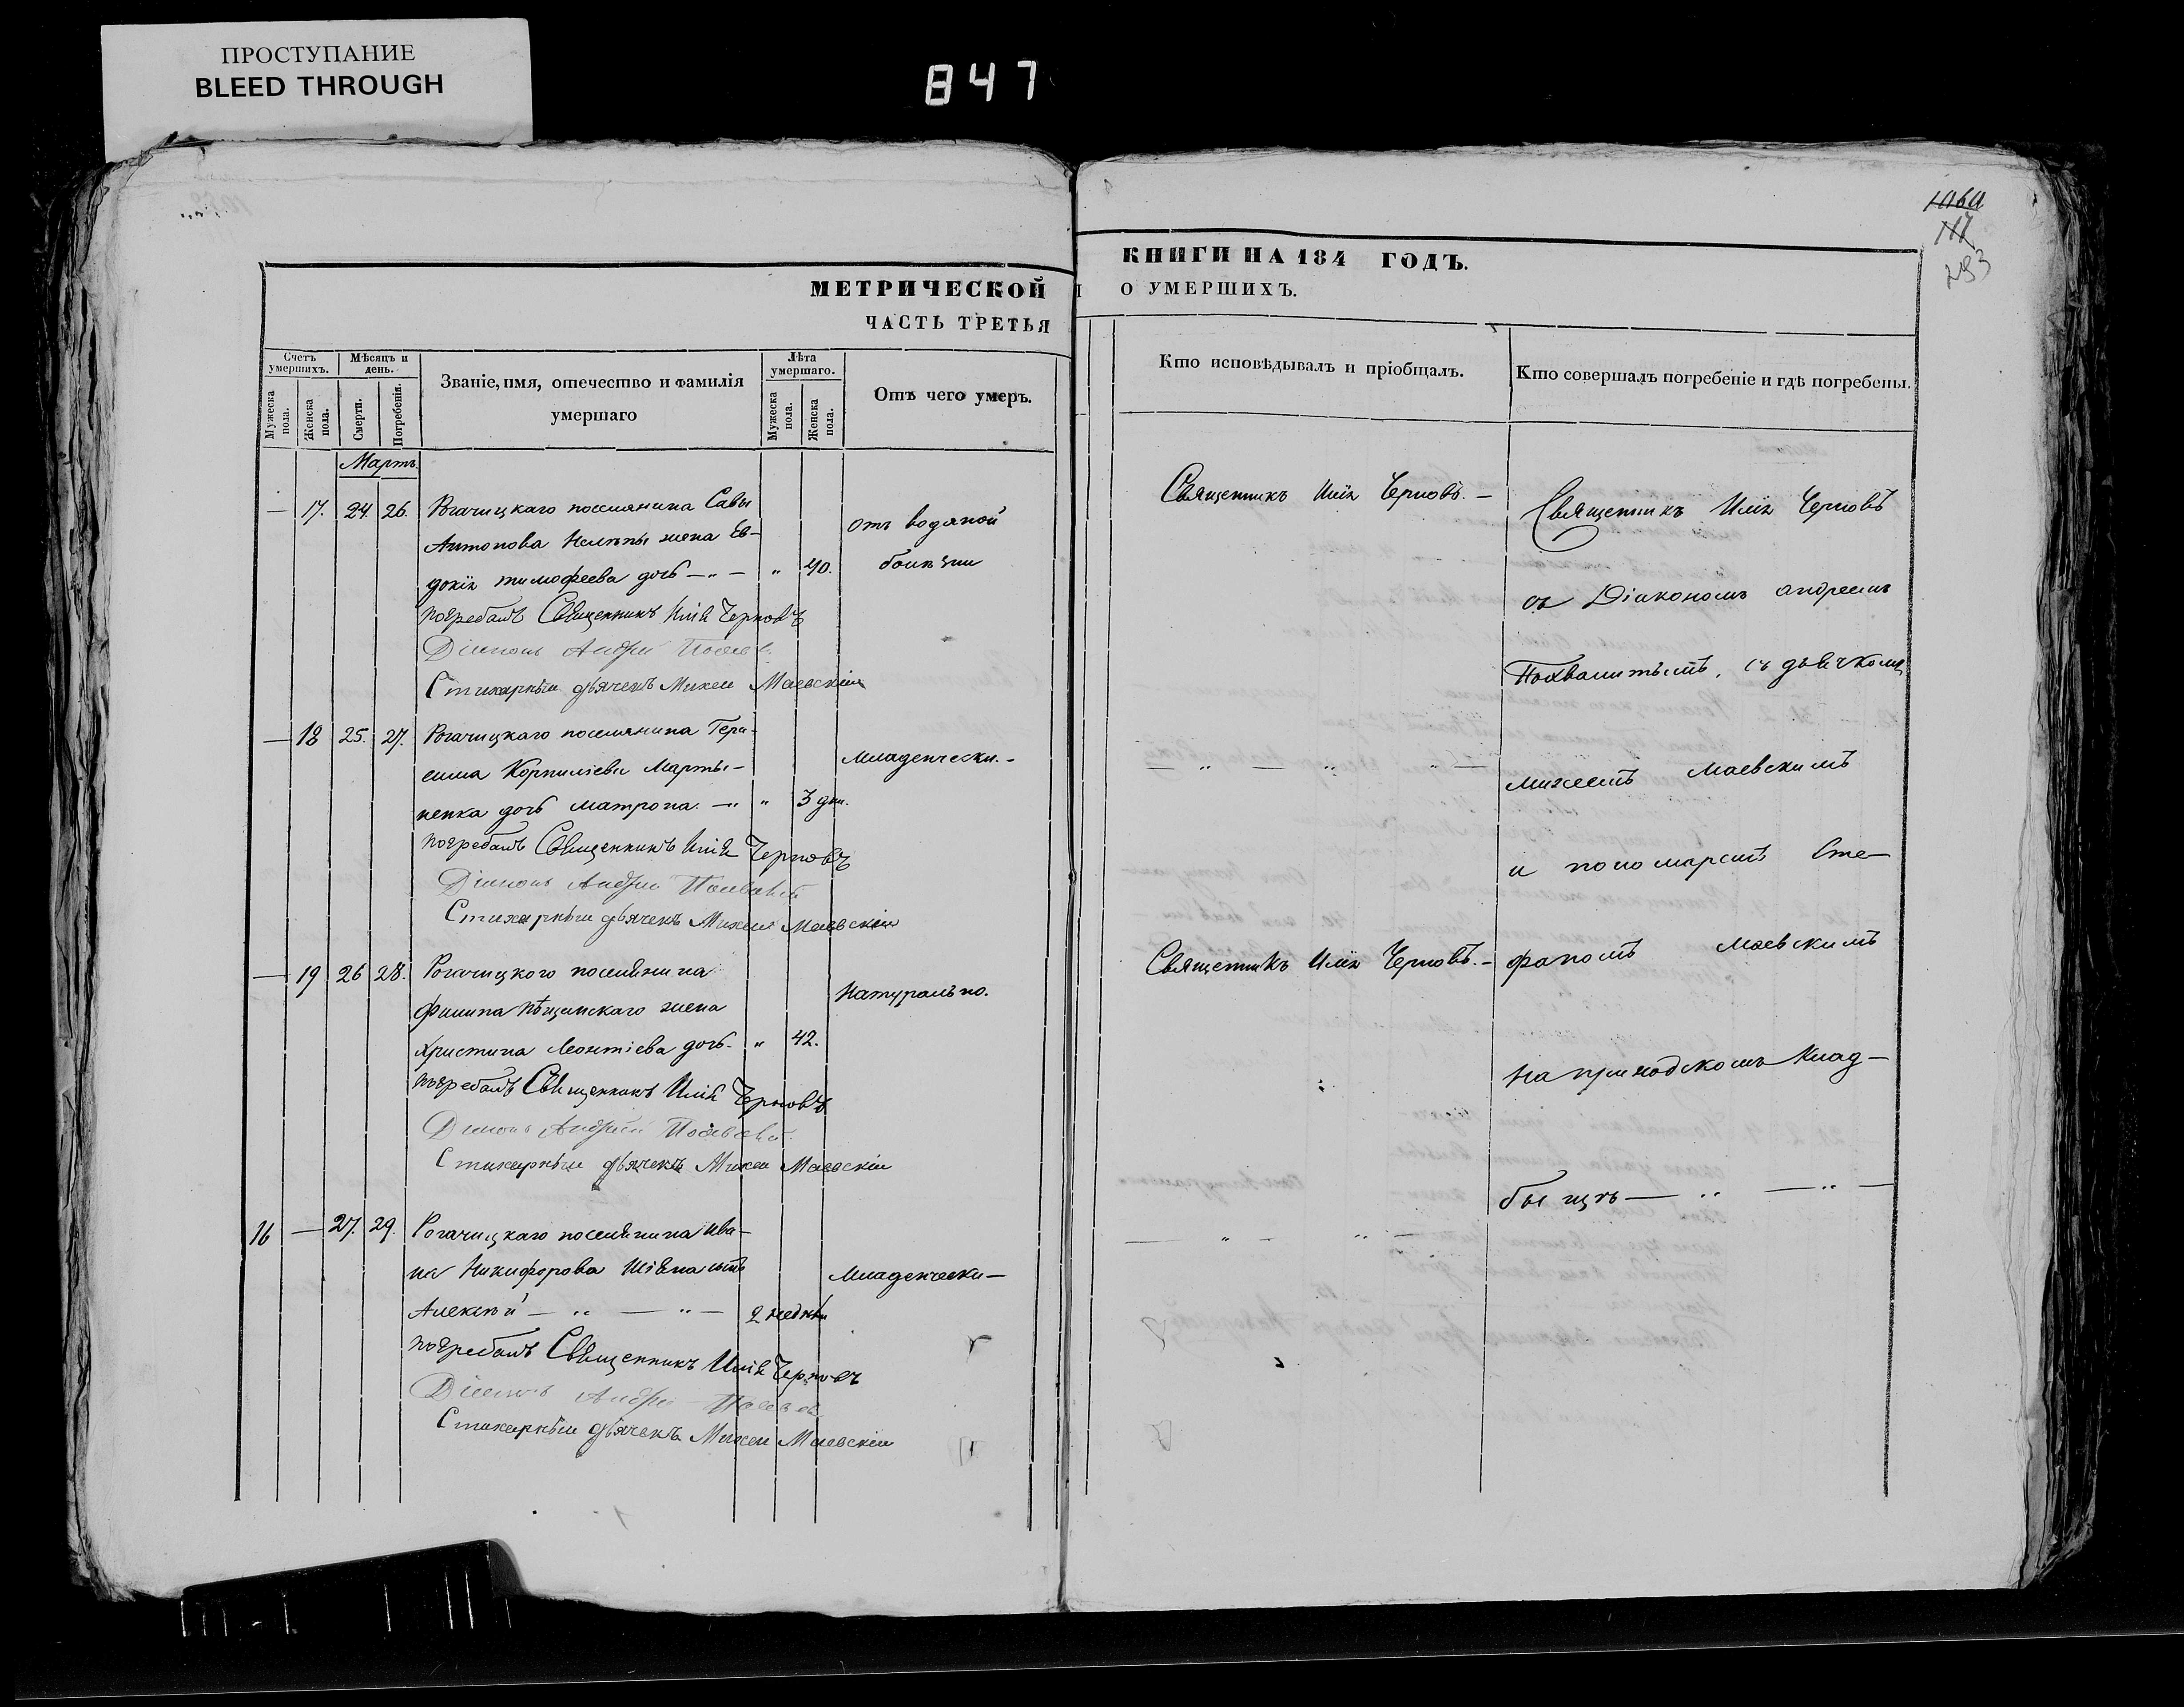 ПРОСТУПАНИЕ
BLEED THROUGH
847
293
МЕТРИЧЕСКОЙ
ЧАСТЬ ТРЕТЬЯ
Счетъ умершихъ.
Мужеска пола.
Женска пола.
Мѣсяцъ и день.
Смерти.
Погребенія.
Званіе, имя, отечество и фамилія
умершаго
Лѣта умершаго.
Мужеска пола.
Женска пола.
Отъ чего умеръ.
Мартъ.
— 17. 24. 26. Рогачицкаго поселянина Савы
Антонова жена Ев-
докія тимофеева дочь — „ — „ 40.
отъ водяной
болѣзни
погребалъ Священникъ Илія Черновъ
Діаконъ Андрей
Стихарный дьячекъ Михей Маевскій
— 18 25. 27. Рогачицкаго поселянина Гера-
сима Корниліева Марты-
ненка дочь матрона. — „ „ 3 дни.
Младенчески. -
погребалъ Священникъ Илія Черновъ
Діаконъ Андрей
Стихарный дьячекъ Михей Маевскій
— 19 26 28. Рогачицкого поселянина
филипа жена
Христина Леонтіева дочь - „ 42.
Натурально.
погребалъ Священникъ Илія Черновъ
Діаконъ Андрей
Стихарный дьячекъ Михей Маевскій
16 — 27. 29. Рогачицкаго поселянина Ива-
на Никифорова сынъ
Алексѣй — „ — „ — 2 недѣли
Младенчески —
погребалъ Священникъ Илія Черновъ
Діаконъ Андрей
Стихарный дьячекъ Михей Маевскій
КНИГИ НА 184 ГОДЪ.
О УМЕРШИХЪ.
Кто исповѣдывалъ и пріобщалъ.
Кто совершалъ погребеніе и гдѣ погребены.
Священникъ Илія Черновъ. —
— „ — „ „ —
Священникъ Илія Черновъ. —
— „ — „ —
Священникъ Илія Черновъ
съ Діакономъ андреемъ
съ дьячкомъ
михеемъ Маевскимъ
и пономаремъ Сте-
фаномъ Маевскимъ
на приходскомъ клад-
бищѣ — „ — „ —